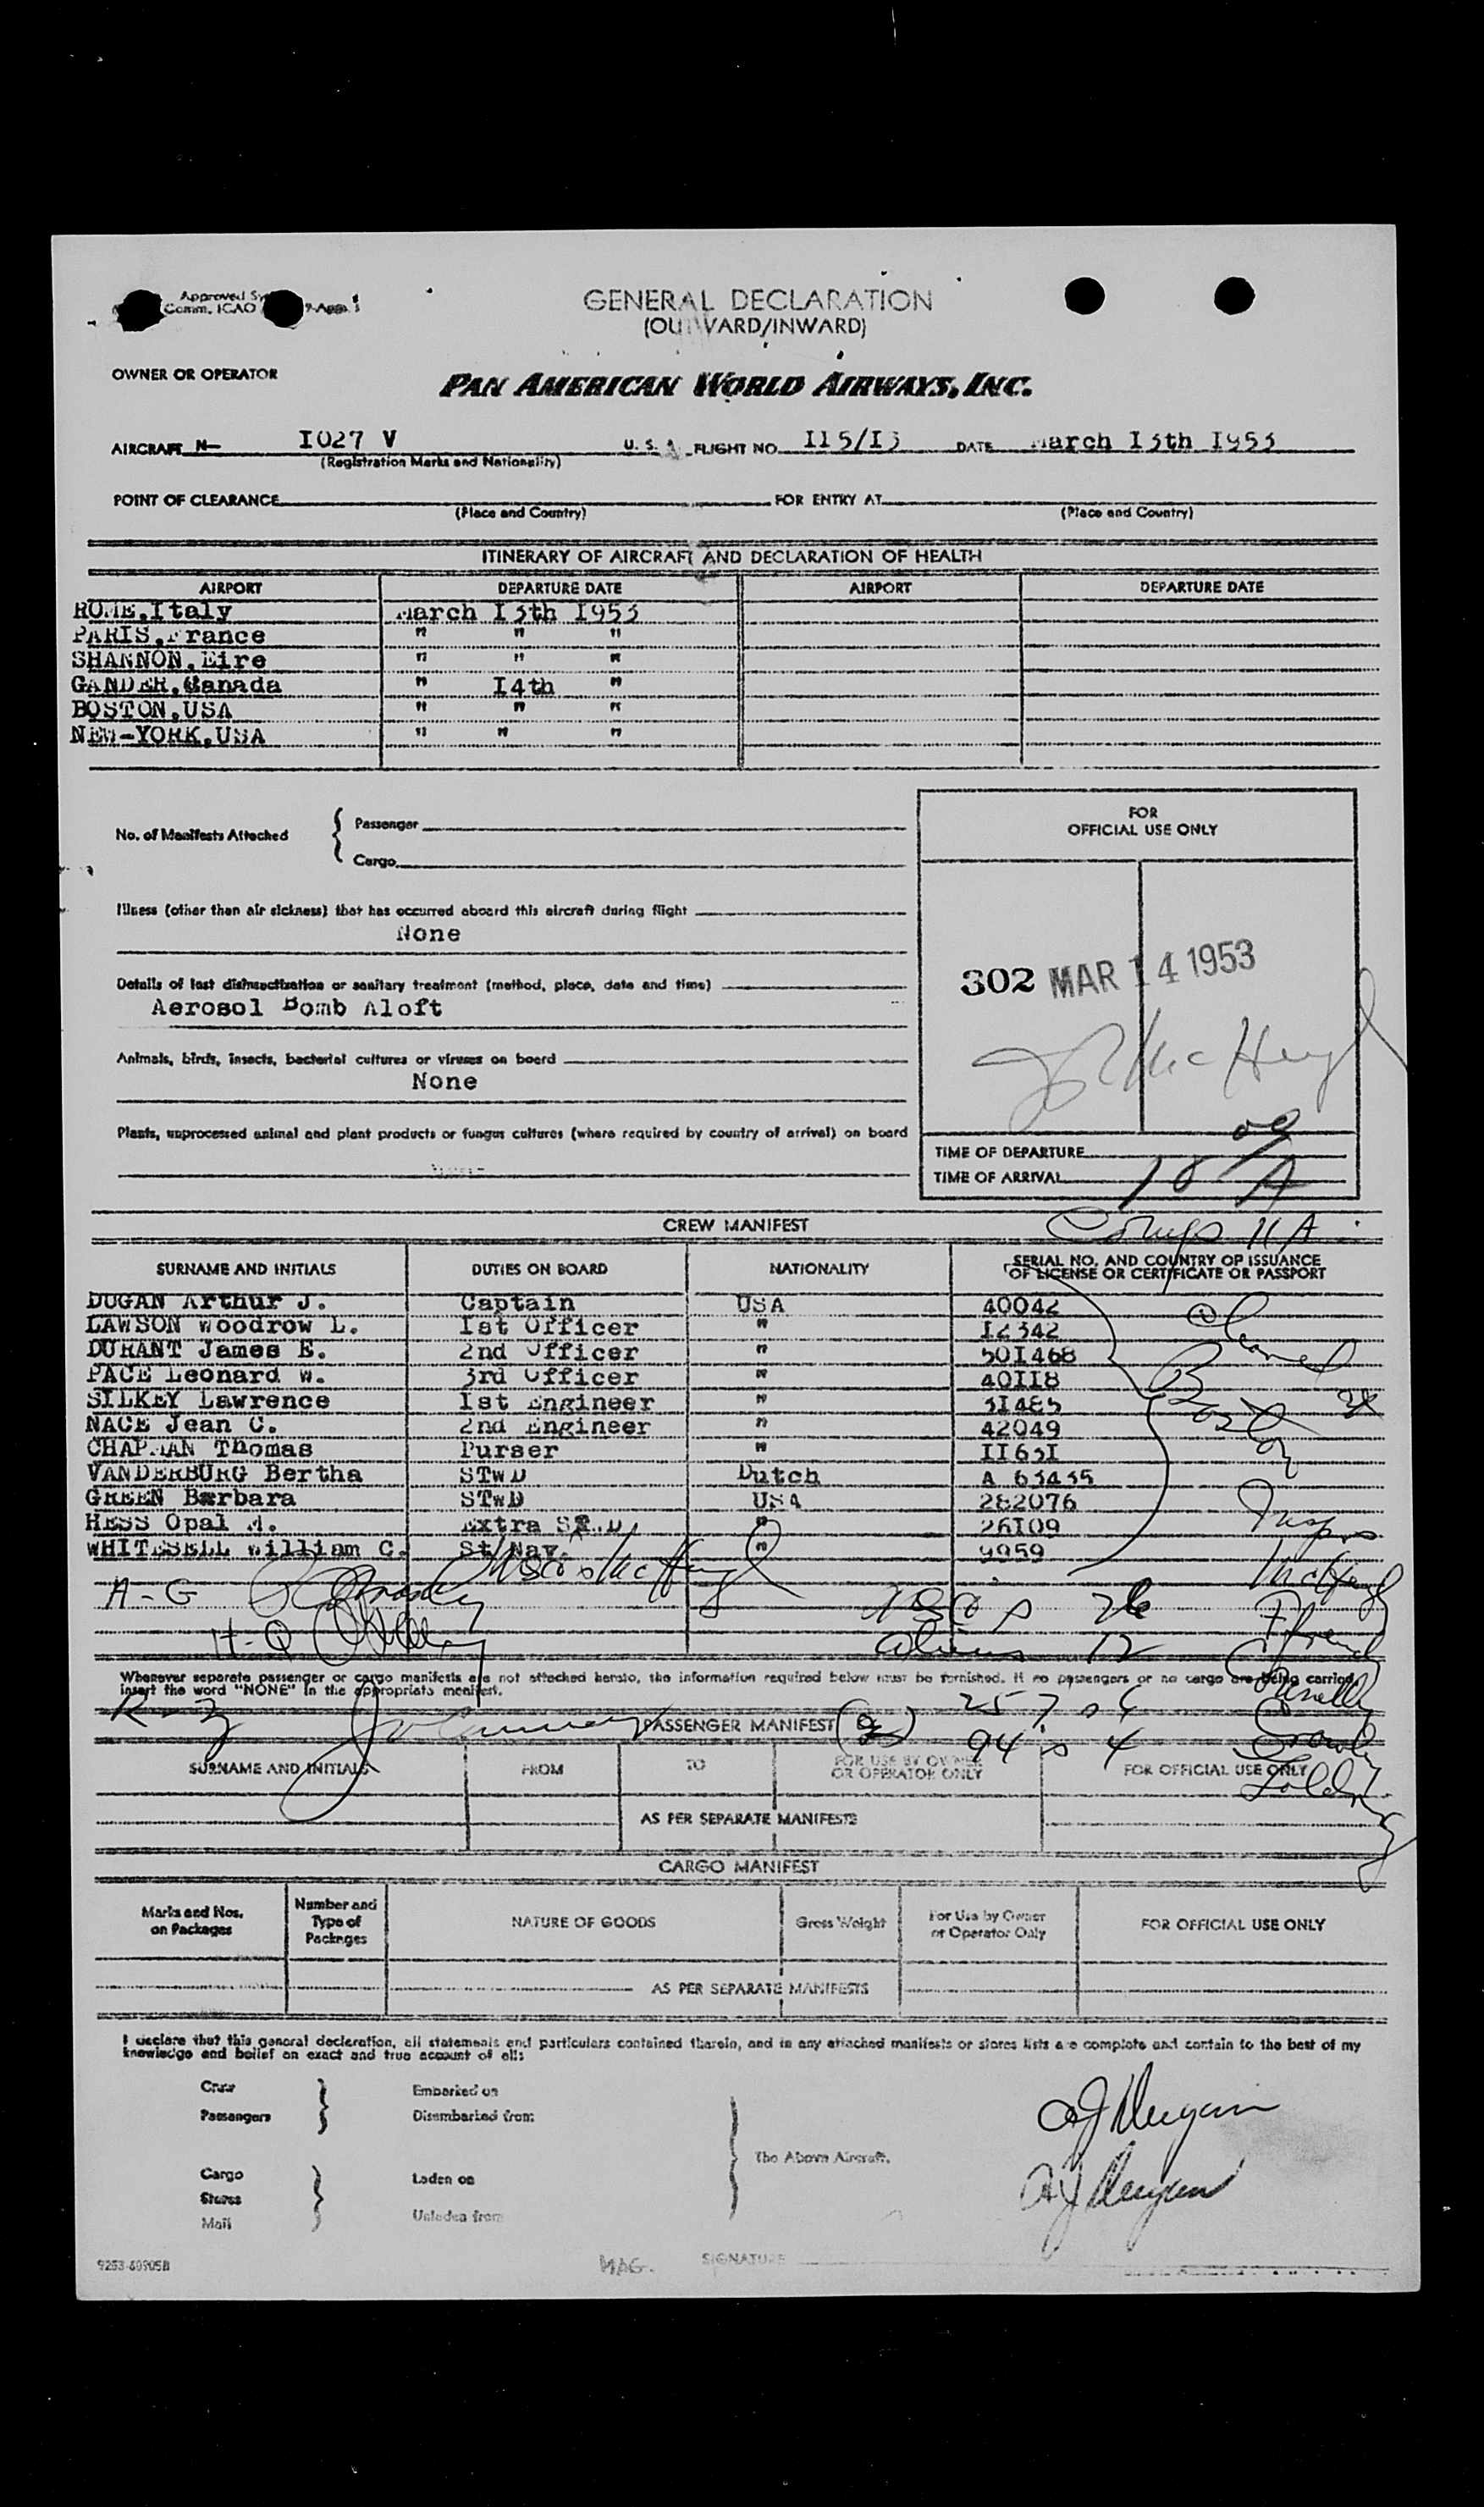 Approved
Comm. ICAO
GENERAL DECLARATION
(OUTWARD/INWARD)
OWNER OR OPERATOR
PAN AMERICAN WORLD AIRWAYS, INC.
AIRCRAFT N- I027 V U. S. A FLIGHT NO. II5/I3 DATE March I3th I953
(Registration Marks and Nationality)
POINT OF CLEARANCE FOR ENTRY AT
(Place and Country) (Place and Country)
ITINERARY OF AIRCRAFT AND DECLARATION OF HEALTH
AIRPORT DEPARTURE DATE AIRPORT DEPARTURE DATE
ROME,Italy March I3th I953
PARIS,France " " "
SHANNON,Eire " " "
GANDER,Canada " I4th "
BOSTON,USA " " "
NEW-YORK,USA " " "
No. of Manifests Attached { Passenger
Cargo
FOR
OFFICIAL USE ONLY
Illness (other than air sickness) that has occurred aboard this aircraft during flight
None
302 MAR 14 1953
Details of last disinsectization or sanitary treatment (method, place, date and time)
Aerosol Bomb Aloft
Animals, birds, insects, bacterial cultures or viruses on board
None
McHugh
Plants, unprocessed animal and plant products or fungus cultures (where required by country of arrival) on board
TIME OF DEPARTURE
TIME OF ARRIVAL 10 09 A
CREW MANIFEST
11 A
SURNAME AND INITIALS DUTIES ON BOARD NATIONALITY SERIAL NO. AND COUNTRY OF ISSUANCE
OF LICENSE OR CERTIFICATE OR PASSPORT
DUGAN Arthur J. Captain USA 40042
LAWSON Woodrow L. Ist Officer " I2342
DURANT James E. 2nd Officer " 50I468
PACE Leonard W. 3rd Officer " 40II8
SILKEY Lawrence Ist Engineer " 3I485
NACE Jean C. 2nd Engineer " 42049
CHAPMAN Thomas Purser " II63I
VANDERBURG Bertha STWD Dutch A 63435
GREEN Barbara STWD USA 282076
HESS Opal M. Extra ST.D " 26I09
WHITESELL William C. St/Nav. " 9959
A-G
McHugh
USC's 26
H-Q
Aliens 12
Wherever separate passenger or cargo manifests are not attached hereto, the information required below must be furnished. If no passengers or no cargo are being carried,
insert the word "NONE" in the appropriate manifest.
R-Z
257's 6
PASSENGER MANIFEST
94's 4
SURNAME AND INITIALS FROM TO FOR USE BY OWNER
OR OPERATOR ONLY FOR OFFICIAL USE ONLY
AS PER SEPARATE MANIFESTS
CARGO MANIFEST
Marks and Nos.
on Packages Number and
Type of
Packages NATURE OF GOODS Gross Weight For Use by Owner
or Operator Only FOR OFFICIAL USE ONLY
AS PER SEPARATE MANIFESTS
I declare that this general declaration, all statements and particulars contained therein, and in any attached manifests or stores lists are complete and contain to the best of my
knowledge and belief an exact and true account of all:
Crew Embarked on
Passengers Disembarked from
The Above Aircraft.
Cargo Laden on
Stores
Mail Unladen from
AJ Dugan
AJ Dugan
SIGNATURE